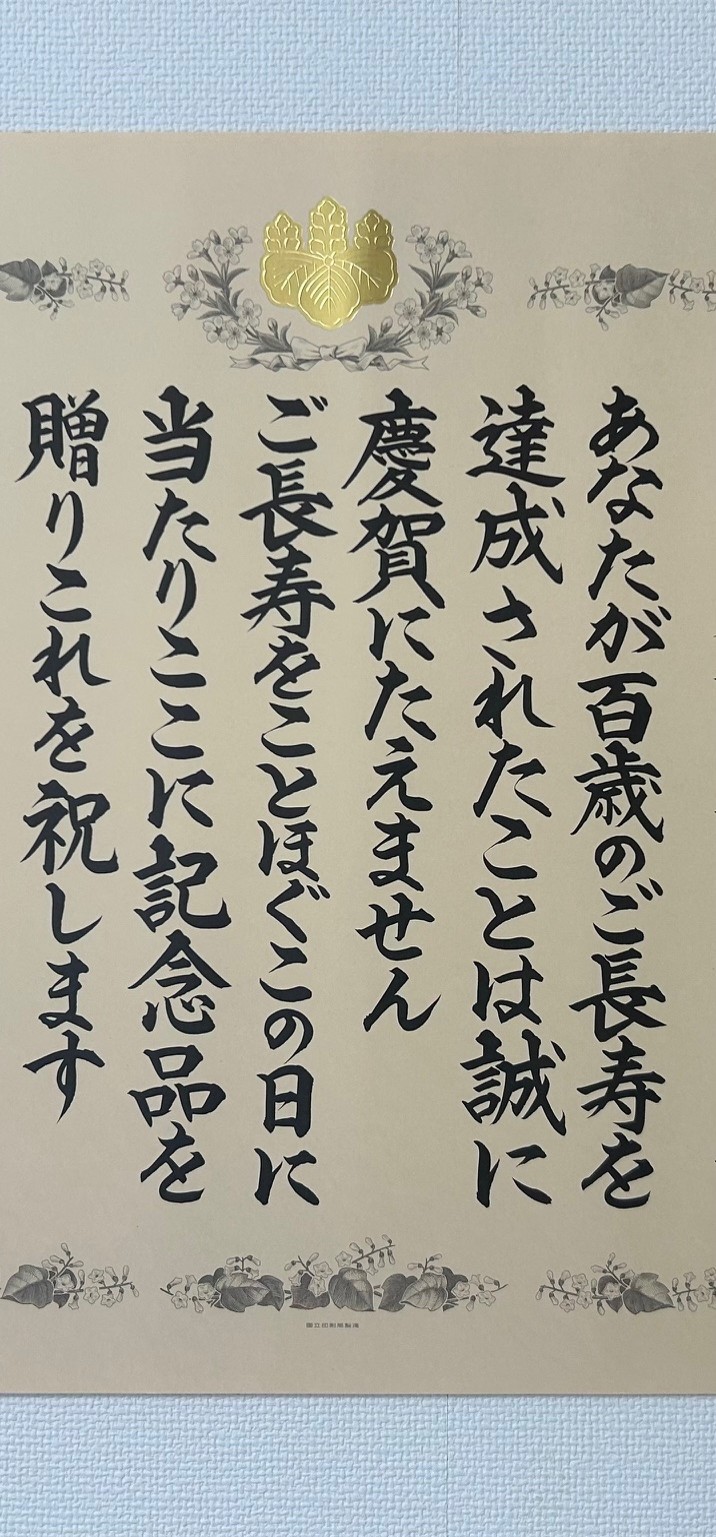 あなたが百歳のご長寿を
達成されたことは誠に
慶賀にたえません
ご長寿をことほぐこの日に
当たりここに記念品を
贈りこれを祝します
國立印刷局製造